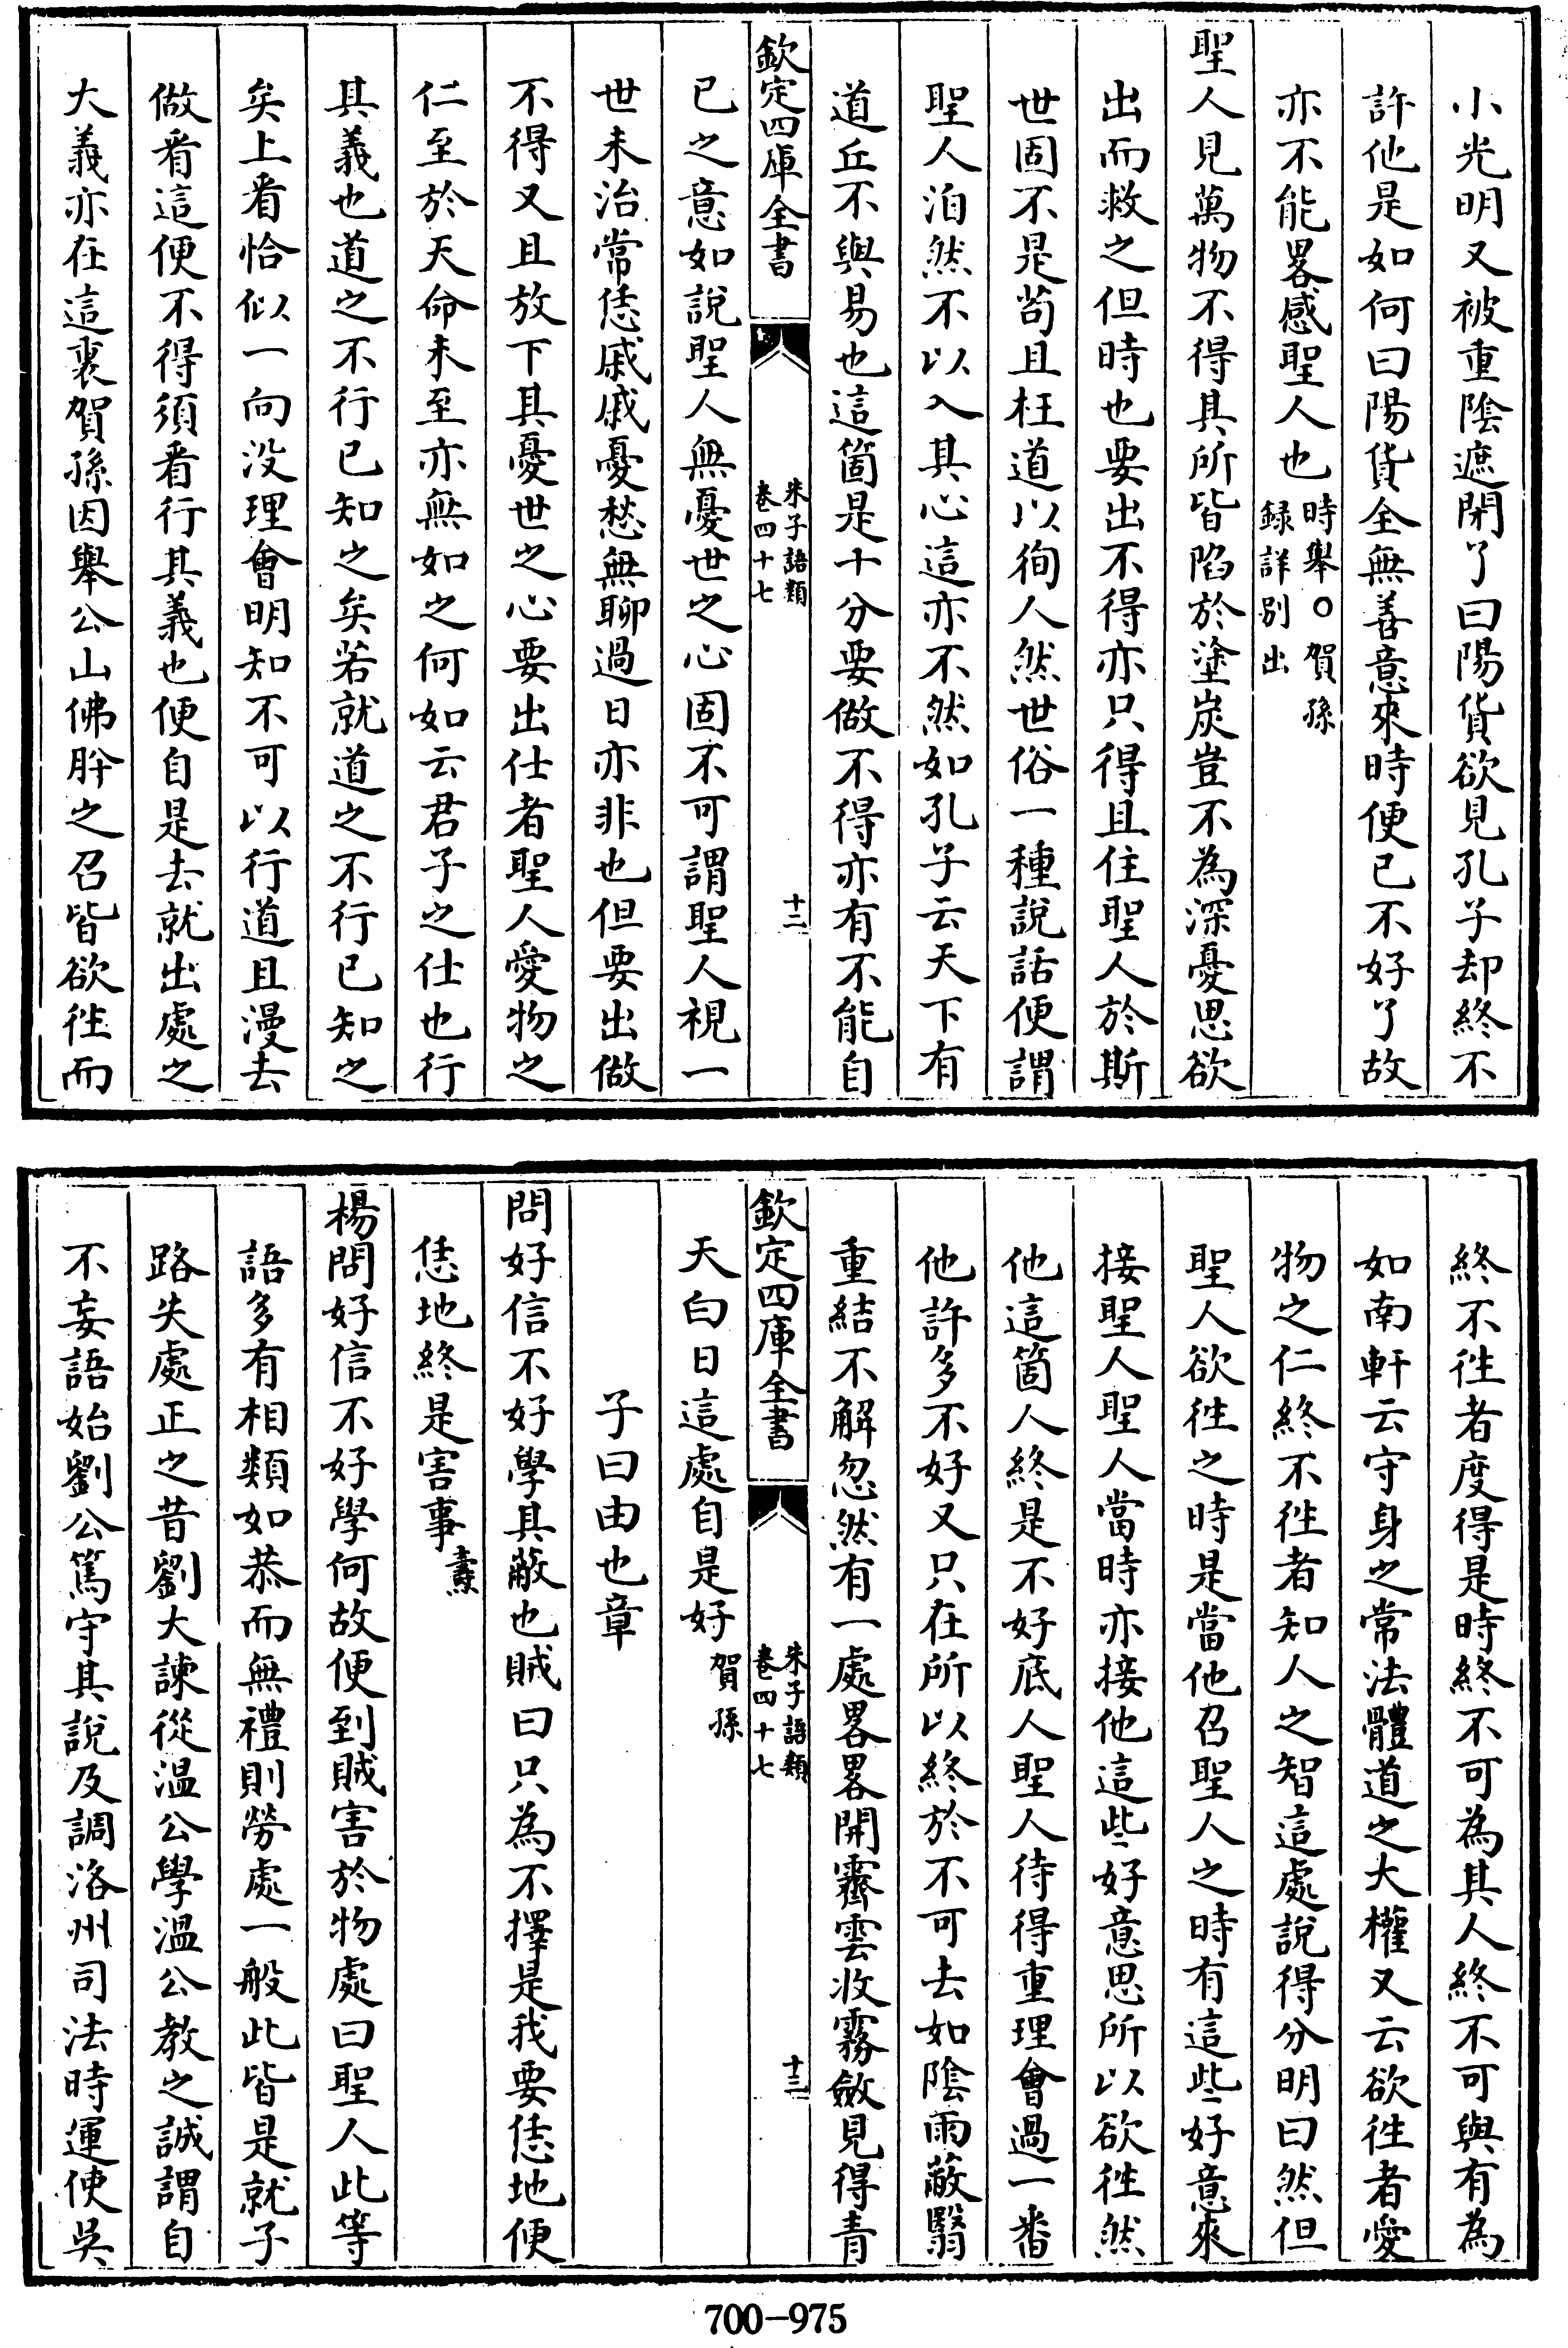 小光明又被重陰遮閉了曰陽貨欲見孔子却終不
許他是如何曰陽貨全無善意來時便已不好了故
亦不能畧感聖人也時舉○賀孫
録詳别出
聖人見萬物不得其所皆陷於塗炭豈不為深憂思欲
出而救之但時也要出不得亦只得且住聖人於斯
世固不是苟且枉道以徇人然世俗一種說話便謂
聖人泊然不以入其心這亦不然如孔子云天下有
道丘不與易也這箇是十分要做不得亦有不能自
欽定四庫全書
朱子語類
卷四十七
十二
已之意如說聖人無憂世之心固不可謂聖人視一
世未治常恁戚戚憂愁無聊過日亦非也但要出做
不得又且放下其憂世之心要出仕者聖人愛物之
仁至於天命未至亦無如之何如云君子之仕也行
其義也道之不行已知之矣若就道之不行已知之
矣上看恰似一向沒理會明知不可以行道且漫去
做看這便不得須看行其義也便自是去就出處之
大義亦在這裏賀孫因舉公山佛肸之召皆欲徃而
終不徃者度得是時終不可為其人終不可與有為
如南軒云守身之常法體道之大權又云欲徃者愛
物之仁終不徃者知人之智這處說得分明曰然但
聖人欲徃之時是當他召聖人之時有這些好意來
接聖人聖人當時亦接他這些好意思所以欲徃然
他這箇人終是不好底人聖人待得重理會過一番
他許多不好又只在所以終於不可去如陰雨蔽翳
重結不解忽然有一處畧畧開霽雲收霧斂見得青
欽定四庫全書
朱子語類
卷四十七
十三
天白日這處自是好賀孫
子曰由也章
問好信不好學其蔽也賊曰只為不擇是我要恁地便
恁地終是害事燾
楊問好信不好學何故便到賊害於物處曰聖人此等
語多有相類如恭而無禮則勞處一般此皆是就子
路失處正之昔劉大諫從溫公學溫公教之誠謂自
不妄語始劉公篤守其說及調洛州司法時運使吳
700-975